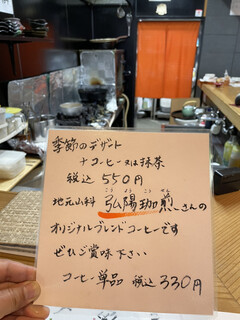 季節のデザート
+コーヒー又は抹茶
税込 550円
地元山科 弘陽珈煎さんの
オリジナルブレンドコーヒーです
ぜひご賞味下さい
コーヒー単品 税込 330円